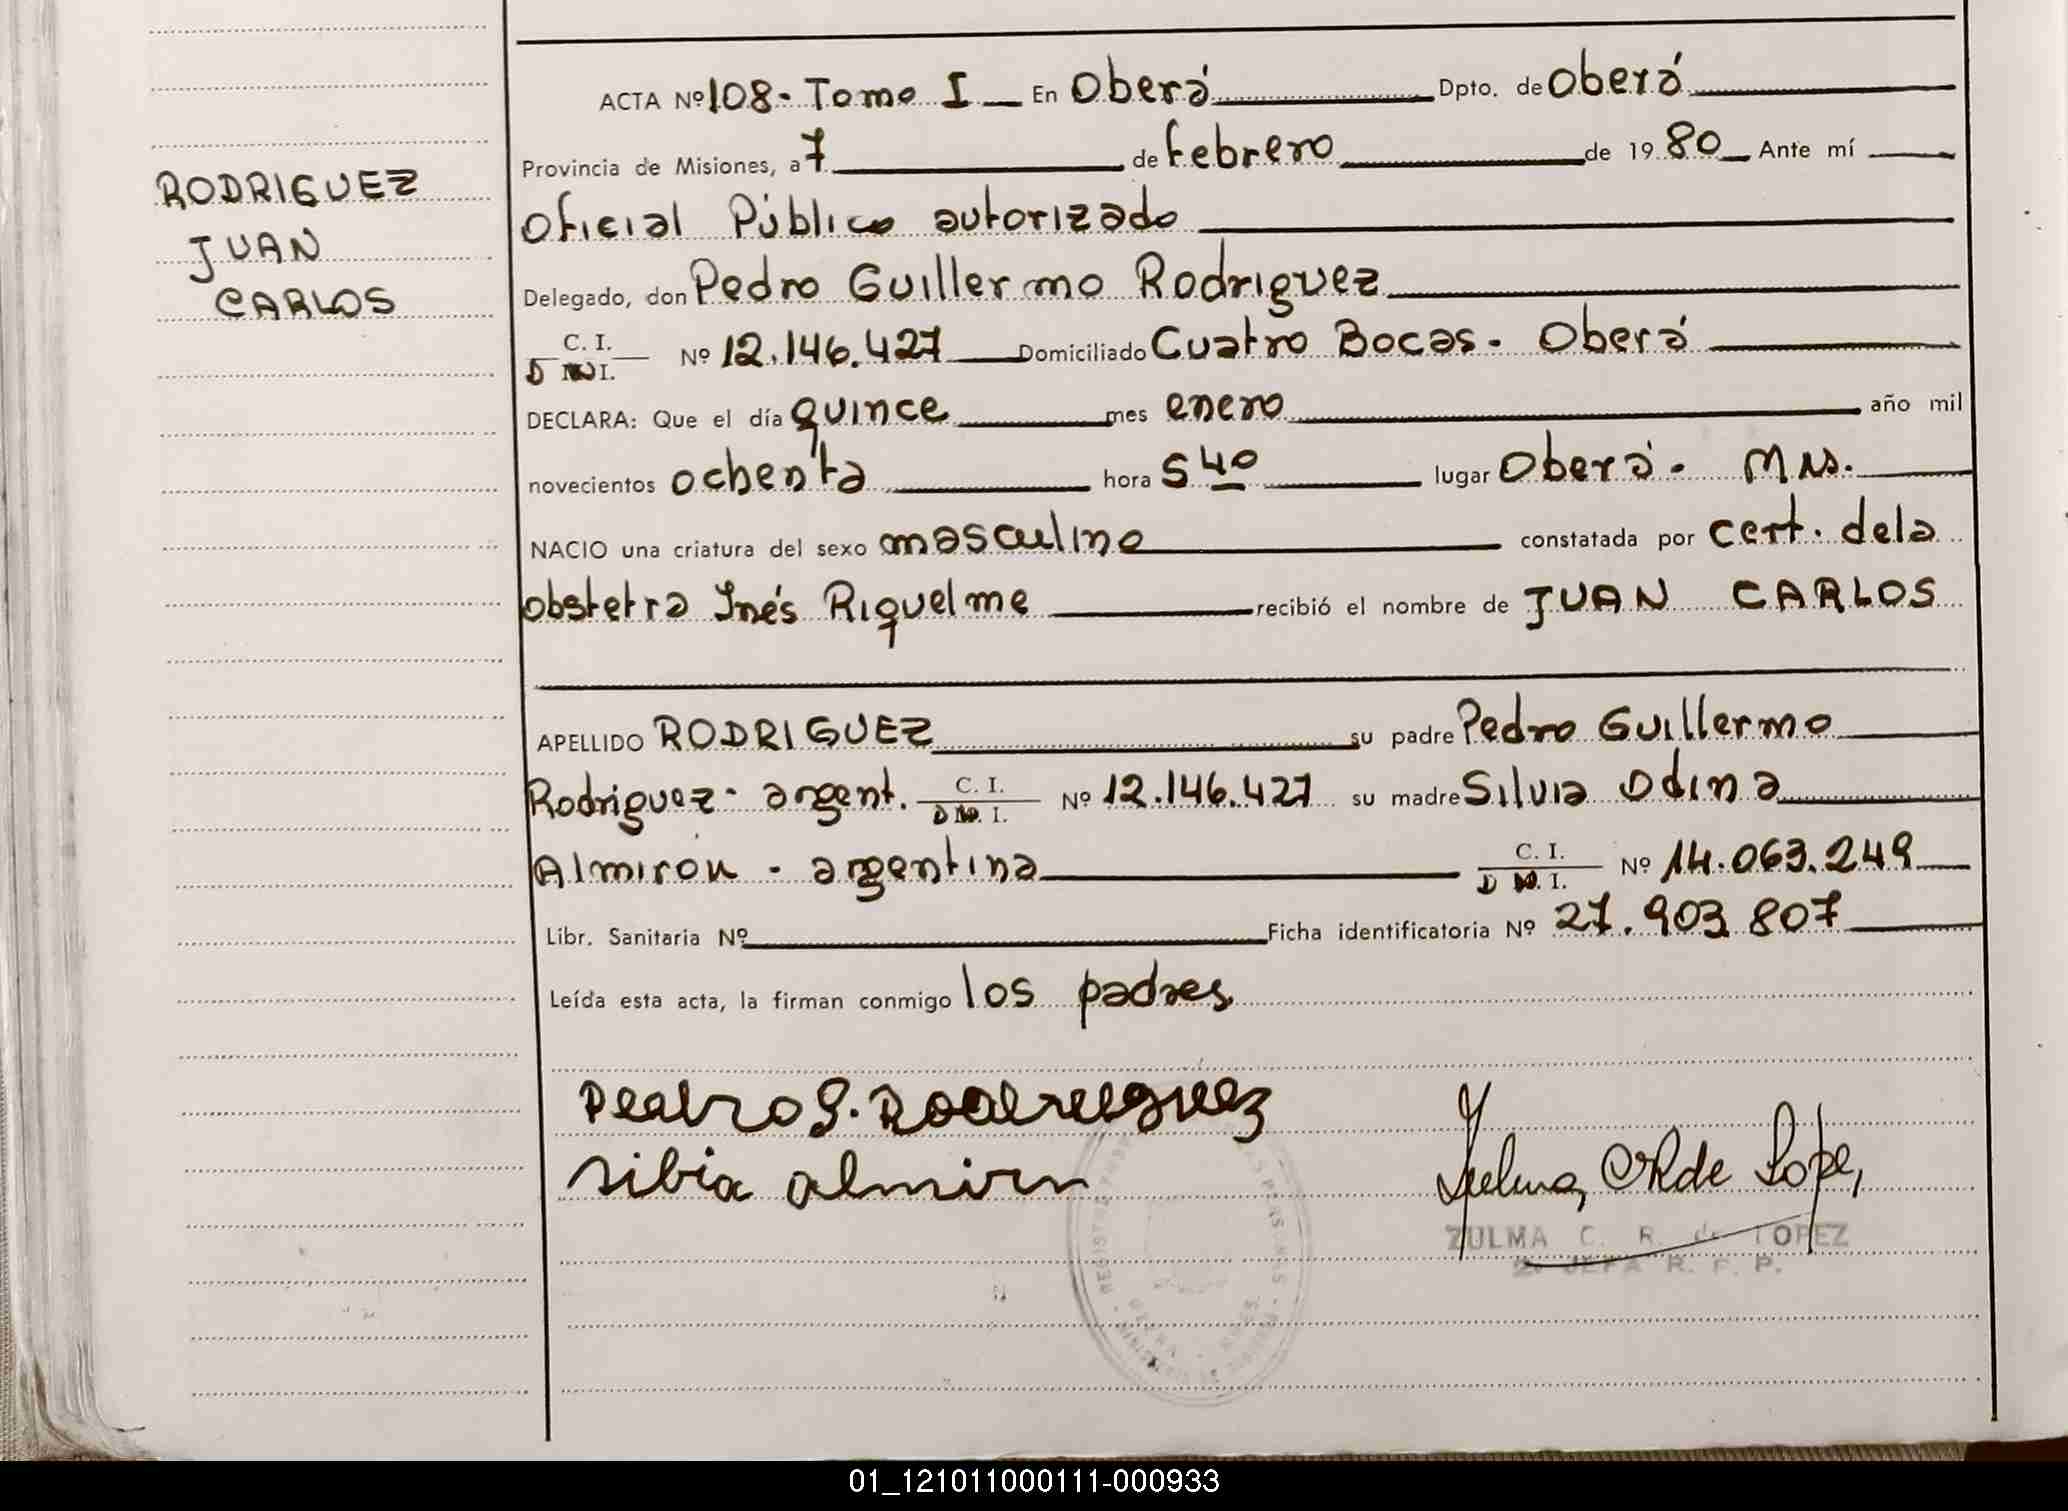 RODRIGUEZ
JUAN
CARLOS
ACTA Nº 108 - Tomo I En Oberá Dpto. de Oberá
Provincia de Misiones, a 7 de febrero de 1980 Ante mí
Oficial Público autorizado
Delegado, don Pedro Guillermo Rodriguez
C. I.
D N I. Nº 12.146.427 Domiciliado Cuatro Bocas - Oberá
DECLARA: Que el día quince mes enero año mil
novecientos ochenta hora 5 40 lugar Oberá - Mns.
NACIO una criatura del sexo masculino constatada por cert. dela
obstetra Inés Riquelme recibió el nombre de JUAN CARLOS
APELLIDO RODRIGUEZ su padre Pedro Guillermo
Rodriguez - argent. C. I. D N. I. Nº 12.146.427 su madre Silvia Odina
Almirón - argentina C. I. D N. I. Nº 14.063.249
Libr. Sanitaria Nº Ficha identificatoria Nº 27.903.807
Leída esta acta, la firman conmigo los padres
Pedro G. Rodrieguez
Silbia almirn
Zulma de Lopez
ZULMA C. R. de LOPEZ
2º JEFA R. P. P.
01_121011000111-000933